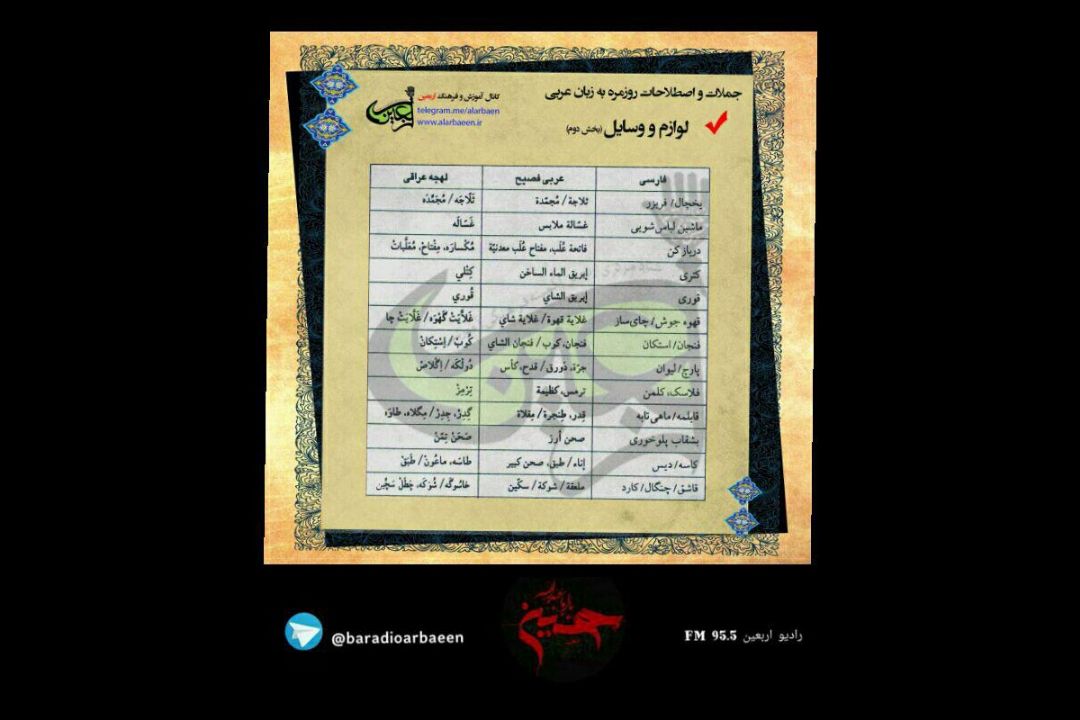 جملات و اصطلاحات روزمره به زبان عربی
لوازم و وسایل (بخش دوم)
کانال آموزش و فرهنگ اربعین
telegram.me/alarbaen
www.alarbaeen.ir
فارسی عربی فصیح لهجه عراقی
یخچال/ فریزر ثلاجة / مُجمّدة ثَلّاجَه / مُجَمَّدَه
ماشین لباس‌شویی غسّالة ملابس غَسّالَه
دربازکن فاتحة عُلَب، مفتاح عُلَب معدنیّة مُکْسارَه، مِفْتاحْ، مُعَلَّباتْ
کتری إبریق الماء الساخن کِتْلي
قوری إبریق الشاي قُوري
قهوه جوش/ چای‌ساز غلایة قهوة/ غلایة شاي غَلّایَتْ گَهْوَه / غَلّایَتْ چا
فنجان/ استکان فنجان، کوب/ فنجان الشاي کُوبْ/ اِسْتِکانْ
پارچ/ لیوان جرّة، دَورق/ قدح، کأس دُولْکَه / اِگْلاصْ
فلاسک، کلمن ترمس، کظیمة تِرْمِزْ
قابلمه/ ماهی تابه قِدر، طنجرة/ مِقلاة گِدِرْ، جِدِرْ/ مِگلاه، طاوَه
بشقاب پلوخوری صحن أرز صَحَنْ تِمَّنْ
کاسه/ دیس إناء/ طبق، صحن کبیر طاسَه، ماعُونْ/ طَبَقْ
قاشق/ چنگال/ کارد ملعقة/ شوکة/ سکّین خاشُوگَه/ شُوکَه، چَطَلْ سَچّینِ
@baradioarbaeen
حسین
رادیو اربعین FM 95.5